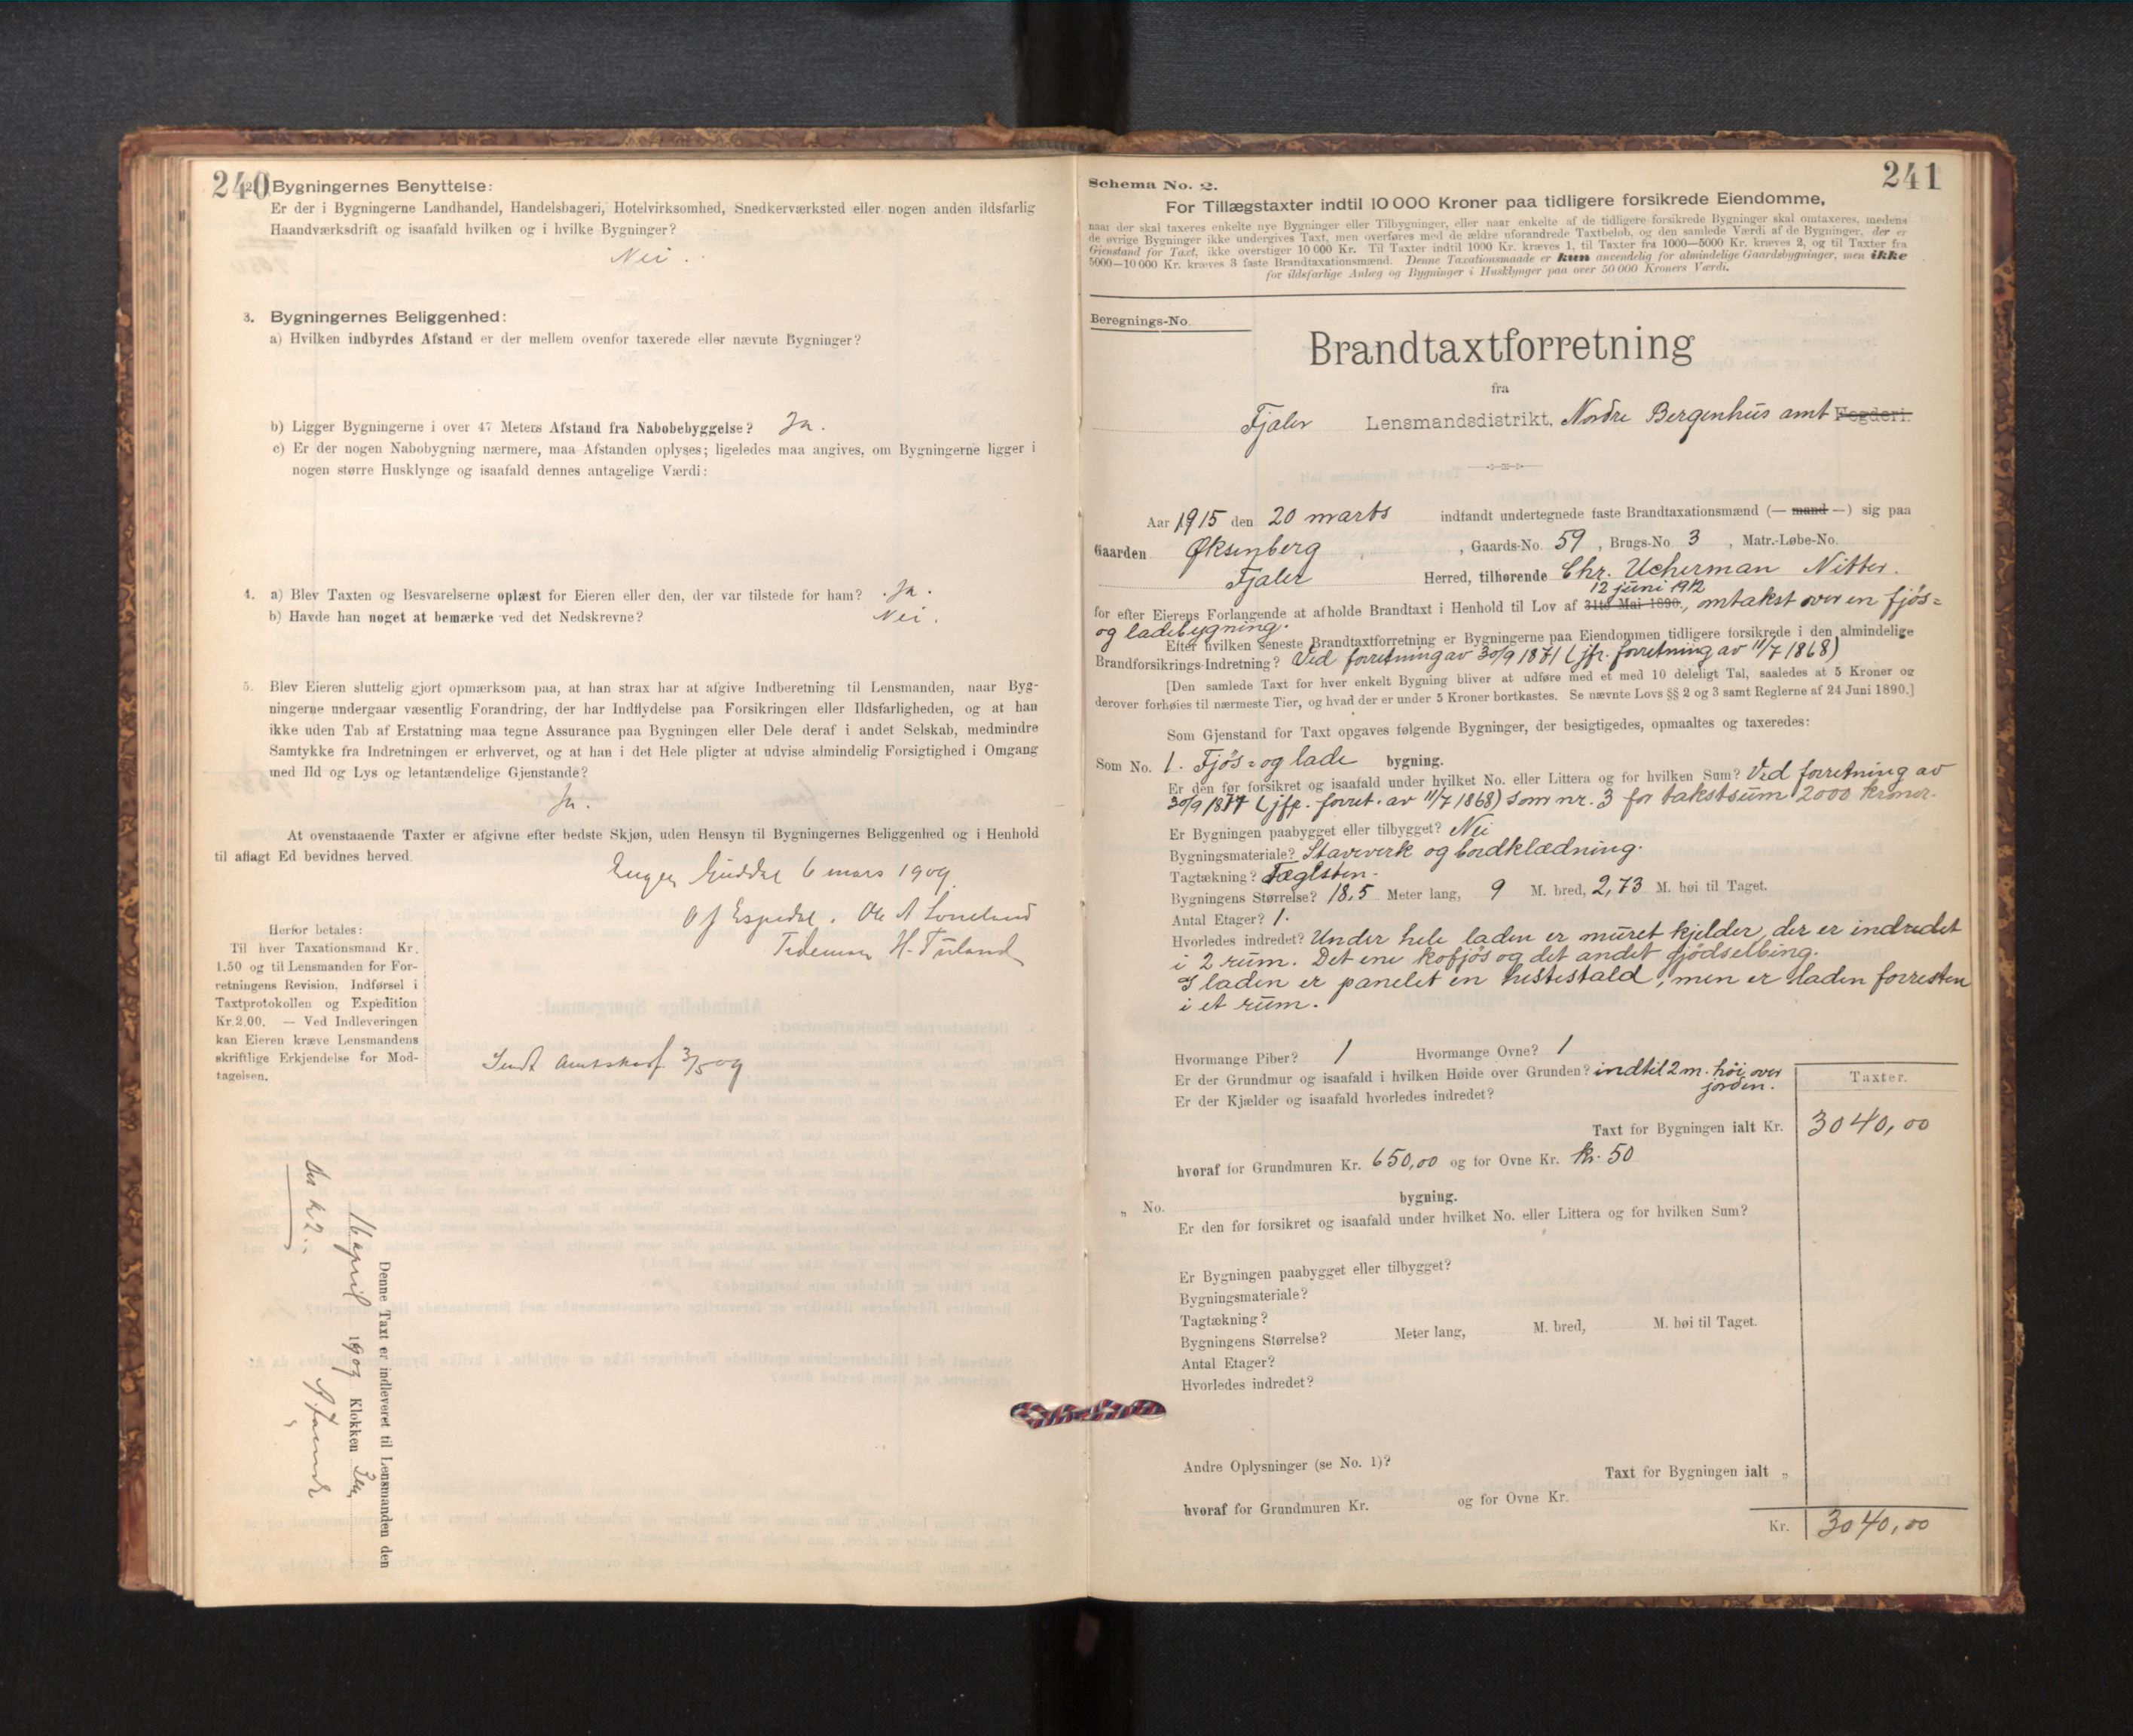 240
2. Bygningernes Benyttelse:
Er der i Bygningerne Landhandel, Handelsbageri, Hotelvirksomhed, Snedkerværksted eller nogen anden ildsfarlig
Haandværksdrift og isaafald hvilken og i hvilke Bygninger?
Nei.
3. Bygningernes Beliggenhed:
a) Hvilken indbyrdes Afstand er der mellem ovenfor taxerede eller nævnte Bygninger?
b) Ligger Bygningerne i over 47 Meters Afstand fra Nabobebyggelse? Ja.
c) Er der nogen Nabobygning nærmere, maa Afstanden oplyses; ligeledes maa angives, om Bygningerne ligger i
nogen større Husklynge og isaafald dennes antagelige Værdi:
4. a) Blev Taxten og Besvarelserne oplæst for Eieren eller den, der var tilstede for ham? Ja.
b) Havde han noget at bemærke ved det Nedskrevne? Nei.
5. Blev Eieren sluttelig gjort opmærksom paa, at han strax har at afgive Indberetning til Lensmanden, naar Byg-
ningerne undergaar væsentlig Forandring, der har Indflydelse paa Forsikringen eller Ildsfarligheden, og at han
ikke uden Tab af Erstatning maa tegne Assurance paa Bygningen eller Dele deraf i andet Selskab, medmindre
Samtykke fra Indretningen er erhvervet, og at han i det Hele pligter at udvise almindelig Forsigtighed i Omgang
med Ild og Lys og letantændelige Gjenstande?
Ja.
At ovenstaaende Taxter er afgivne efter bedste Skjøn, uden Hensyn til Bygningernes Beliggenhed og i Henhold
til aflagt Ed bevidnes herved.
Guddal 6 mars 1909.
O J Espedal. Ole A
H.
Herfor betales:
Til hver Taxationsmand Kr.
1.50 og til Lensmanden for For-
retningens Revision, Indførsel i
Taxtprotokollen og Expedition
Kr. 2.00. — Ved Indleveringen
kan Eieren kræve Lensmandens
skriftlige Erkjendelse for Mod-
tagelsen.
Sendt 3/5 09
Denne Taxt er indleveret til Lensmanden den
16 april 1909 Klokken
241
Schema No. 2.
For Tillægstaxter indtil 10 000 Kroner paa tidligere forsikrede Eiendomme,
naar der skal taxeres enkelte nye Bygninger eller Tilbygninger, eller naar enkelte af de tidligere forsikrede Bygninger skal omtaxeres, medens
de øvrige Bygninger ikke undergives Taxt, men overføres med de ældre uforandrede Taxtbeløb, og den samlede Værdi af de Bygninger, der er
Gjenstand for Taxt, ikke overstiger 10 000 Kr. Til Taxter indtil 1000 Kr. kræves 1, til Taxter fra 1000—5000 Kr. kræves 2, og til Taxter fra
5000—10 000 Kr. kræves 3 faste Brandtaxationsmænd. Denne Taxationsmaade er kun anvendelig for almindelige Gaardsbygninger, men ikke
for ildsfarlige Anlæg og Bygninger i Husklynger paa over 50 000 Kroners Værdi.
Beregnings-No.
Brandtaxtforretning
fra
Fjaler Lensmandsdistrikt, Nordre Bergenhus amt Fogderi.
Aar 1915 den 20 marts indfandt undertegnede faste Brandtaxationsmænd (— mand —) sig paa
Gaarden Øksenberg, Gaards-No. 59, Brugs-No. 3, Matr.-Løbe-No.
Fjaler Herred, tilhørende Chr. Ucherman Nitter.
12 juni 1912
for efter Eierens Forlangende at afholde Brandtaxt i Henhold til Lov af 31te Mai 1890, omtakst over en fjøs=
og ladebygning.
Efter hvilken seneste Brandtaxtforretning er Bygningerne paa Eiendommen tidligere forsikrede i den almindelige
Brandforsikrings-Indretning? Ved forretning av 30/9 1871 (jfr. forretning av 11/7 1868)
[Den samlede Taxt for hver enkelt Bygning bliver at udføre med et med 10 deleligt Tal, saaledes at 5 Kroner og
derover forhøies til nærmeste Tier, og hvad der er under 5 Kroner bortkastes. Se nævnte Lovs §§ 2 og 3 samt Reglerne af 24 Juni 1890.]
Som Gjenstand for Taxt opgaves følgende Bygninger, der besigtigedes, opmaaltes og taxeredes:
Som No. 1. Fjøs= og lade bygning.
Er den før forsikret og isaafald under hvilket No. eller Littera og for hvilken Sum? Ved forretning av
30/9 1871 (jfr. forret. av 11/7 1868) som nr. 3 for takstsum 2000 kroner.
Er Bygningen paabygget eller tilbygget? Nei
Bygningsmateriale? Staververk og bordklædning.
Tagtækning? Tæglsten.
Bygningens Størrelse? 18,5 Meter lang, 9 M. bred, 2,73 M. høi til Taget.
Antal Etager? 1.
Hvorledes indredet? Under hele laden er muret kjelder, der er indredet
i 2 rum. Det ene kofjøs og det andet gjødselbing.
I laden er panelet en hestestald, men er laden forresten
i et rum.
Hvormange Piber? 1 Hvormange Ovne? 1
Er der Grundmur og isaafald i hvilken Høide over Grunden? indtil 2 m. høi over
jorden.
Er der Kjælder og isaafald hvorledes indredet?
Taxter.
Taxt for Bygningen ialt Kr. 3040,00
hvoraf for Grundmuren Kr. 650,00 og for Ovne Kr. kr. 50
„ No. bygning.
Er den før forsikret og isaafald under hvilket No. eller Littera og for hvilken Sum?
Er Bygningen paabygget eller tilbygget?
Bygningsmateriale?
Tagtækning?
Bygningens Størrelse? Meter lang, M. bred, M. høi til Taget.
Antal Etager?
Hvorledes indredet?
Andre Oplysninger (se No. 1)?
Taxt for Bygningen ialt „
hvoraf for Grundmuren Kr. og for Ovne Kr.
Kr. 3040,00